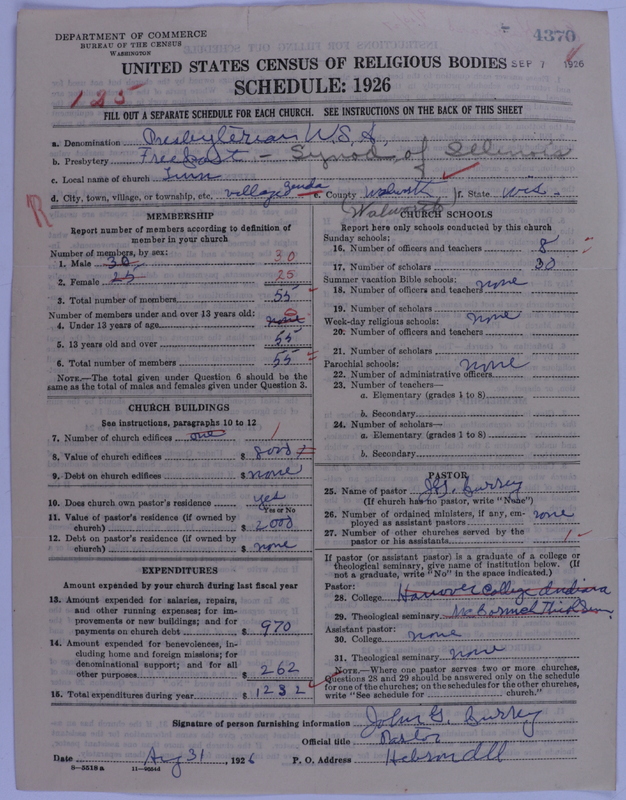 4370
DEPARTMENT OF COMMERCE
BUREAU OF THE CENSUS
WASHINGTON
UNITED STATES CENSUS OF RELIGIOUS BODIES SEP 7 1926
SCHEDULE: 1926
125
FILL OUT A SEPARATE SCHEDULE FOR EACH CHURCH. SEE INSTRUCTIONS ON THE BACK OF THIS SHEET
a. Denomination Presbyterian U.S.A.
b. Presbytery Freeport - Synod of Illinois
c. Local name of church Linn
d. City, town, village, or township, etc. village Zenda e. County Walworth f. State Wis.
Walworth
R
MEMBERSHIP
Report number of members according to definition of member in your church
Number of members, by sex:
1. Male 30 30
2. Female 25 25
3. Total number of members 55
Number of members under and over 13 years old:
4. Under 13 years of age none 0
5. 13 years old and over 55
6. Total number of members 55
NOTE.—The total given under Question 6 should be the
same as the total of males and females given under Question 3.
CHURCH BUILDINGS
See instructions, paragraphs 10 to 12
7. Number of church edifices one 1
8. Value of church edifices $ 8000
9. Debt on church edifices $ none
10. Does church own pastor's residence yes
Yes or No
11. Value of pastor's residence (if owned by
church) $ 2000
12. Debt on pastor's residence (if owned by
church) $ none
EXPENDITURES
Amount expended by your church during last fiscal year
13. Amount expended for salaries, repairs,
and other running expenses; for im-
provements or new buildings; and for
payments on church debt $ 970
14. Amount expended for benevolences, in-
cluding home and foreign missions; for
denominational support; and for all
other purposes $ 262
15. Total expenditures during year $ 1232
CHURCH SCHOOLS
Report here only schools conducted by this church
Sunday schools:
16. Number of officers and teachers 8
17. Number of scholars 30
Summer vacation Bible schools:
18. Number of officers and teachers none
19. Number of scholars
Week-day religious schools: none
20. Number of officers and teachers
21. Number of scholars
Parochial schools: none
22. Number of administrative officers
23. Number of teachers—
a. Elementary (grades 1 to 8)
b. Secondary
24. Number of scholars—
a. Elementary (grades 1 to 8)
b. Secondary
PASTOR
25. Name of pastor J.G.
(If church has no pastor, write "None")
26. Number of ordained ministers, if any, em-
ployed as assistant pastors none
27. Number of other churches served by the
pastor or his assistants 1
If pastor (or assistant pastor) is a graduate of a college or
theological seminary, give name of institution below. (If
not a graduate, write "No" in the space indicated.)
Pastor:
28. College Hanover College Indiana
29. Theological seminary McCormick Theo Sem.
Assistant pastor:
30. College none
31. Theological seminary none
NOTE.—Where one pastor serves two or more churches,
Questions 28 and 29 should be answered only on the schedule
for one of the churches; on the schedules for the other churches,
write "See schedule for church."
Signature of person furnishing information John G.
Official title Pastor
Date Aug 31, 1926 P. O. Address Hebron Ill
8—5518 a